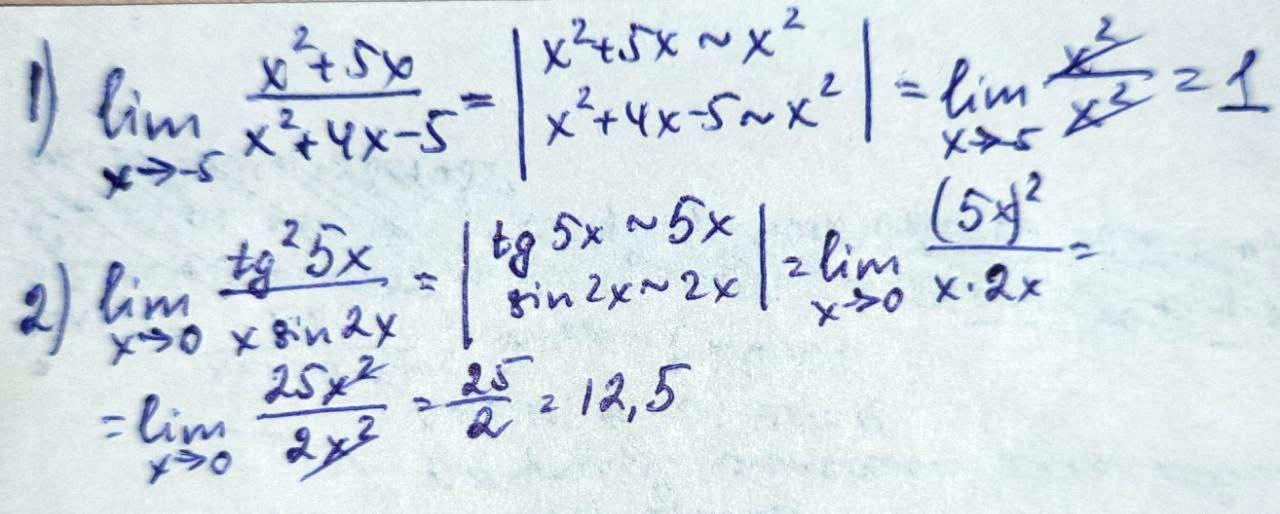 1) lim_{x→-5} (x²+5x)/(x²+4x-5) = |x²+5x ~ x², x²+4x-5 ~ x²| = lim_{x→-5} x²/x² = 1
2) lim_{x→0} (tg²5x)/(x sin2x) = |tg5x ~ 5x, sin2x ~ 2x| = lim_{x→0} (5x)²/(x·2x) =
= lim_{x→0} 25x²/2x² = 25/2 = 12,5